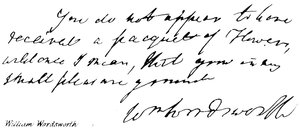 You do not appear to have
received a pacquet of Flower,
wild one I mean, that grow in any
small pleasure ground
Wm Wordsworth
William Wordsworth